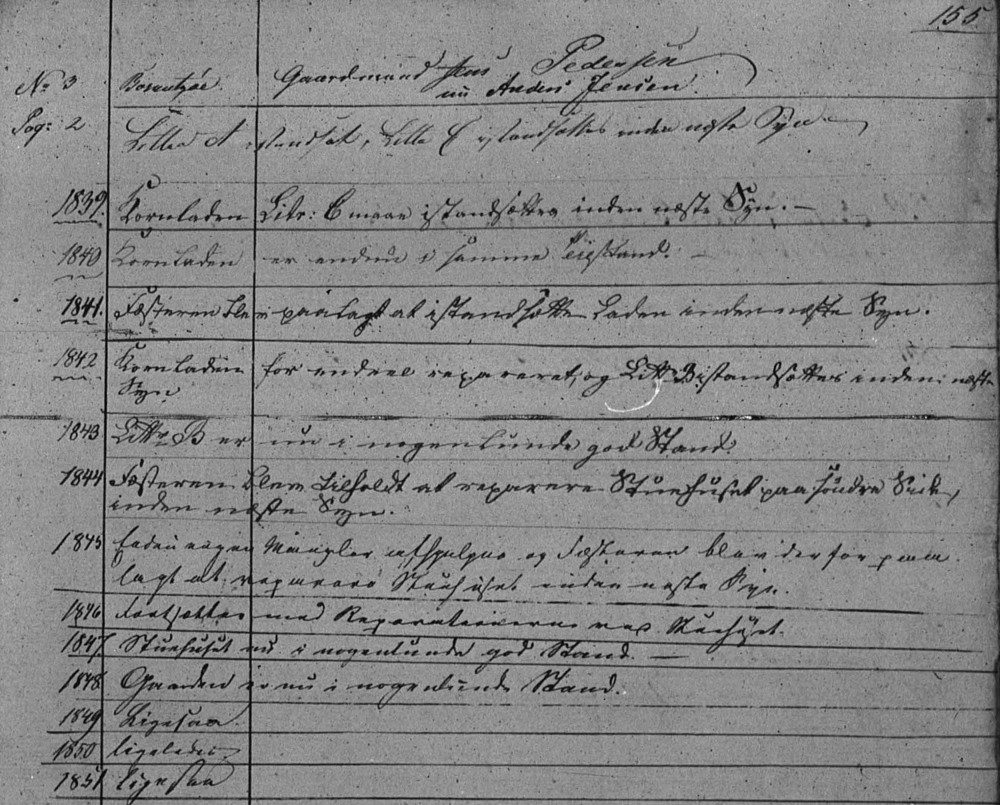 155
No 3 Gaardmand Jens Pedersen
nu Anders Jensen.
Pag: 2 Litter A istandsat, Litter C istandsættes inden næste Syn
1839. Kornladen Litr: C maae istandsættes inden næste Syn. —
1840 Kornladen er endnu i samme Tilstand. —
1841. Fæsteren blev paalagt at istandsætte Laden inden næste Syn.
1842 Kornladen for endeel repareret, og Littr B istandsættes inden næste
Syn
1843 Littr B er nu i nogenlunde god Stand.
1844 Fæsteren blev tilholdt at reparere Stuehuset paa søndre Side,
inden næste Syn.
1845 Mangler og Fæsteren blev derfor paa
lagt at reparere Stuehuset inden næste Syn.
1846 Fortsættes med Reparationerne ved Stuehuset.
1847 Stuehuset nu i nogenlunde god Stand. —
1848 Gaarden er nu i nogenlunde Stand.
1849 Ligesaa.
1850 ligeledes
1851 ligesaa